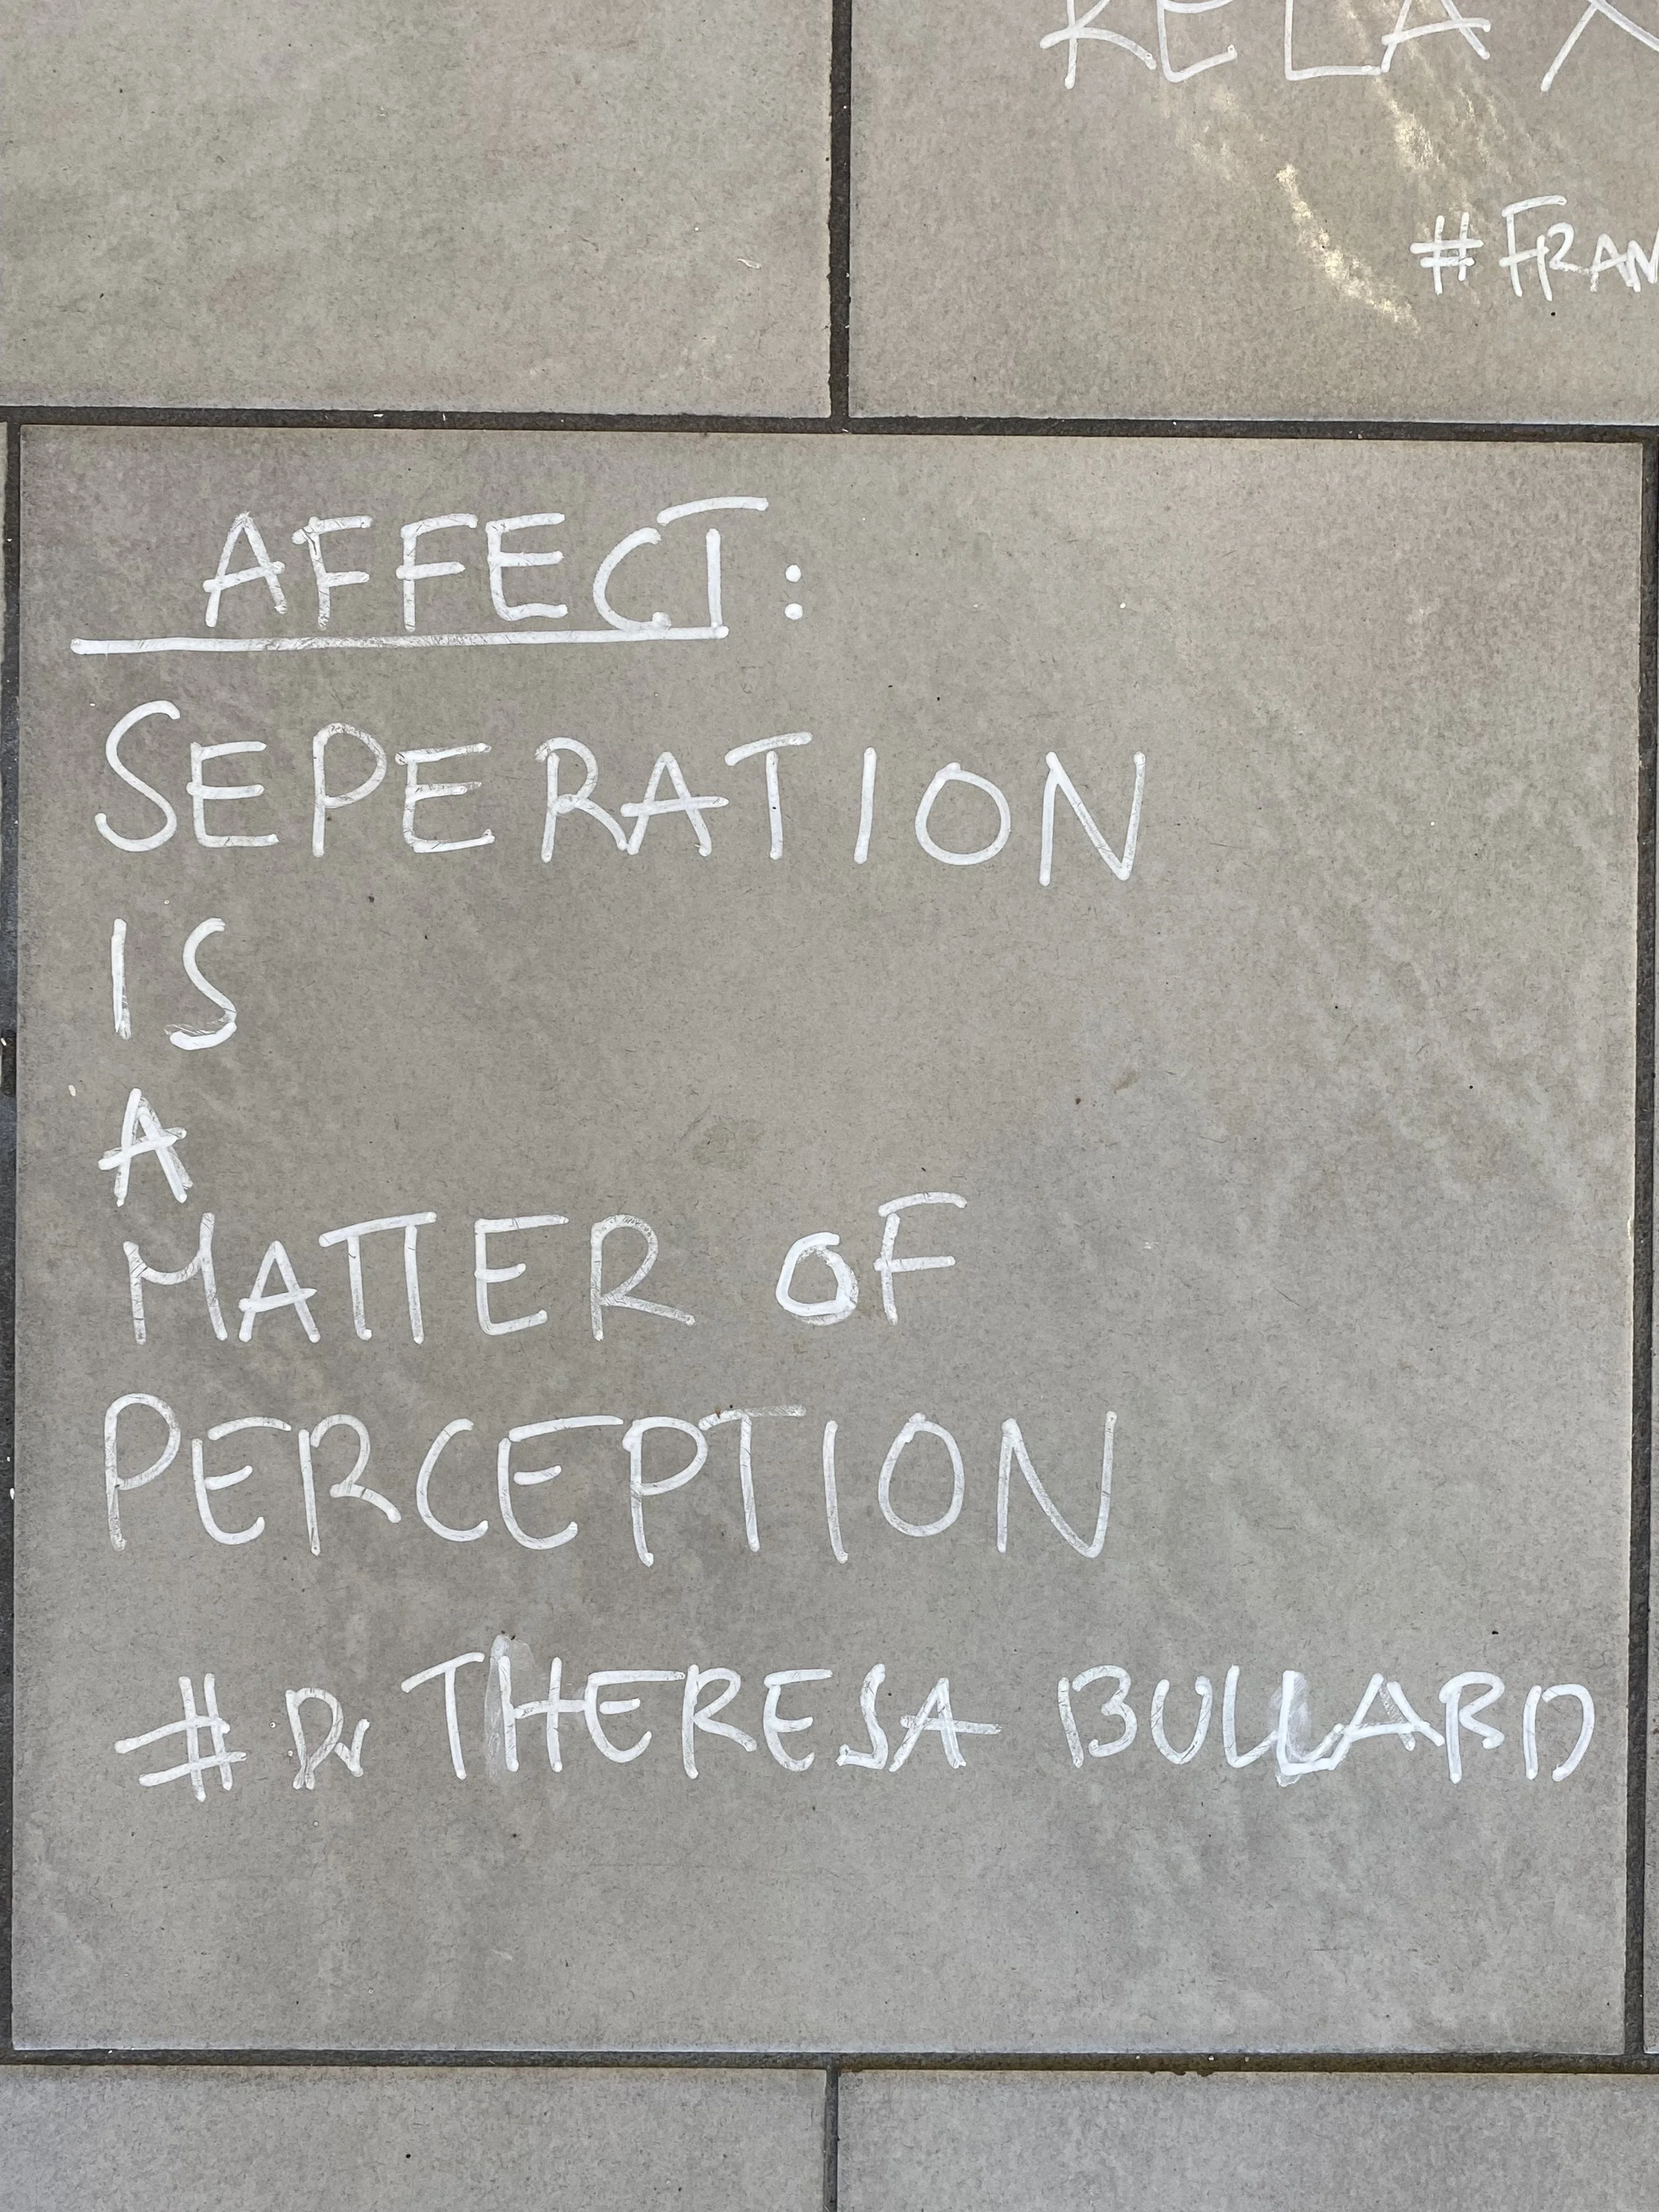 RELAX
#FRAN
AFFECT:
SEPERATION
IS
A
MATTER OF
PERCEPTION
# Dr THERESA BULLARD